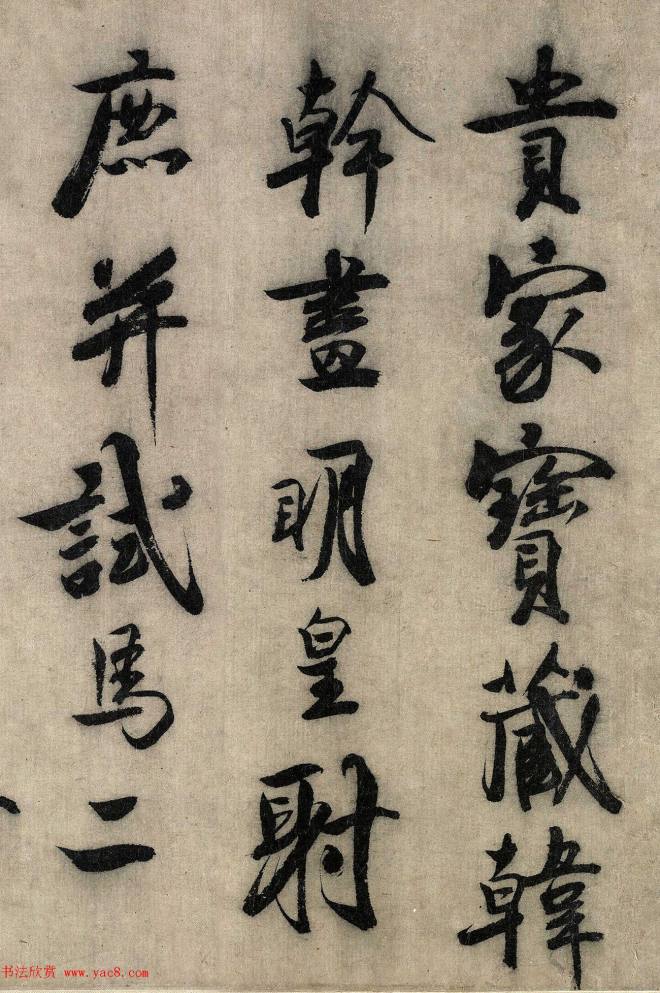 貴家寶藏韓
幹畫明皇射
鹿并試馬二
书法欣赏 www.yac8.com